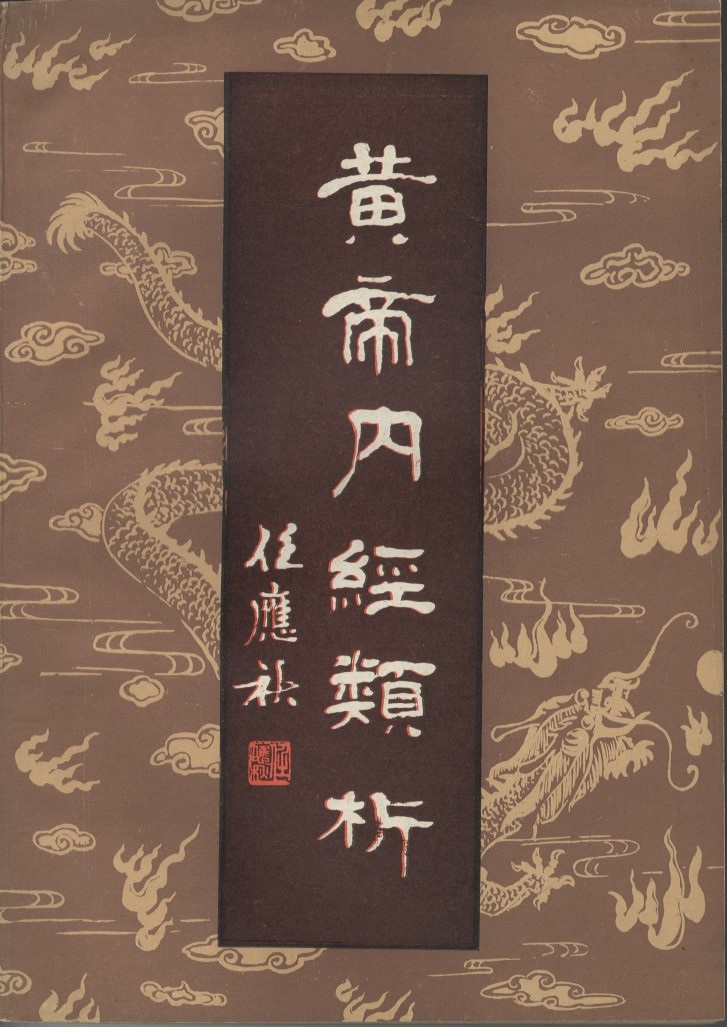 黄帝内經類析
任應秋
任應秋